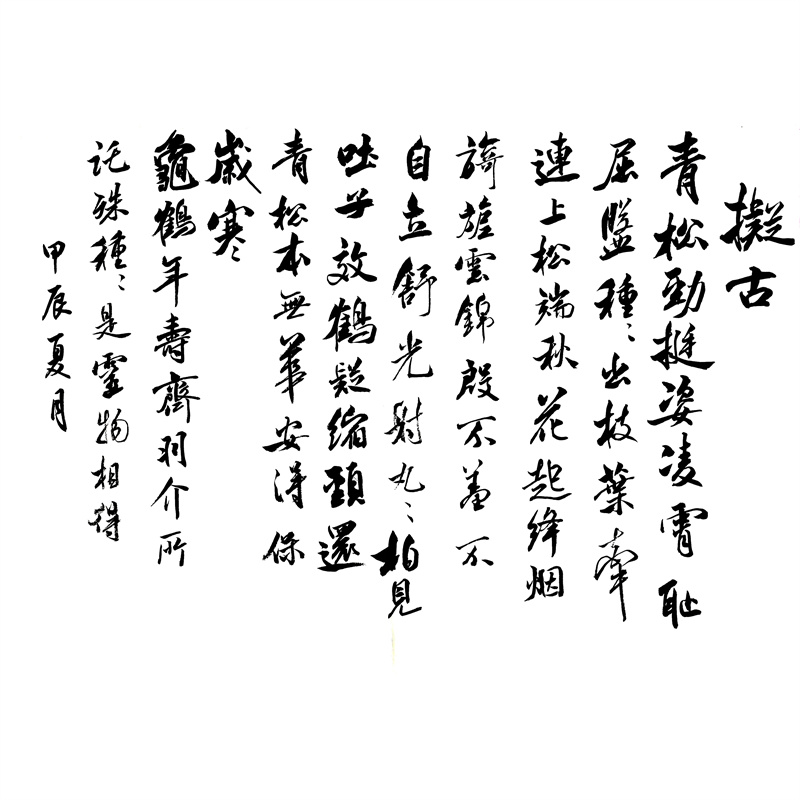 擬古
青松勁挺姿凌霄耻
屈盤種〻出枝葉牽
連上松端秋花起絳烟
旖旎雲錦殷不羞不
自立舒光射丸〻柏見
吐子效鶴疑縮頸還
青松本無華安得保
歲寒〻
龜鶴年壽齊羽介所
託殊種〻是靈物相得
甲辰夏月